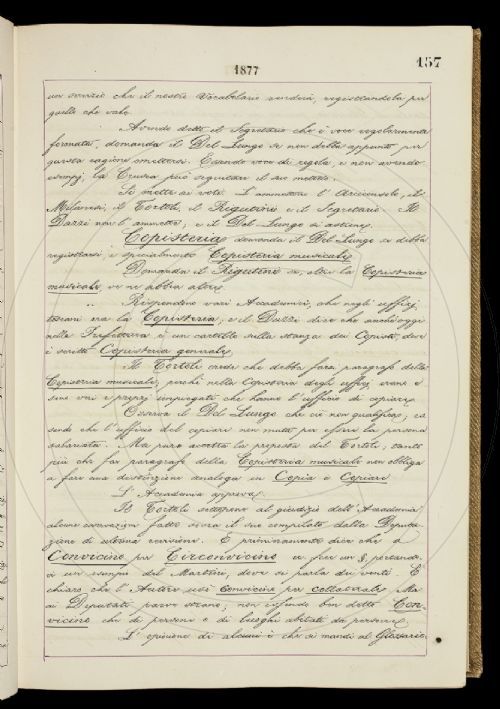 157
1877
un servizio che il nostro Vocabolario renderà, registrandola per
quello che vale.
Avendo detto il Segretario che è voce regolarmente
formata, domanda il Del Lungo se non debba appunto per
questa cagione omettersi. Essendo voce di regola, e non avendo
esempj, la Crusca può seguitare il suo metodo.
Si mette ai voti. L'ammettono l'Arciconsolo, il
Milanesi, il Tortoli, il Rigutini e il Segretario. Il
Dazzi non l'ammette; e il Del Lungo si astiene.
Copisteria domanda il Del Lungo se debba
registrarsi e specialmente Copisteria musicale.
Domanda il Rigutini se, oltre la Copisteria
musicale ve ne abbia altre.
Rispondono varj Accademici, che negli uffizj
toscani era la Copisteria, e il Dazzi dice che anch'oggi
nella Prefettura è un cartello sulla stanza dei Copisti, dove
è scritto Copisteria generale.
Il Tortoli crede che debba farsi paragrafo della
Copisteria musicale, perchè nella Copisteria degli uffizj erano e
sono veri e proprj impiegati che hanno l'ufficio di copiare.
Osserva il Del Lungo che ciò non guasterebbe, es
sendo che l'ufficio del copiare non muti per essere la persona
salariata. Ma pure accetta la proposta del Tortoli, tanto
più che far paragrafo della Copisteria musicale non obbliga
a fare una distinzione analoga in Copia e Copiare.
L'Accademia approva.
Il Tortoli sottopone al giudizio dell'Accademia
alcune osservazioni fatte sovra il suo compilato dalla Deputa
zione di ultima revisione. E primieramente dice che a
Convicino per Circonvicino si fece un §. portando
vi un esempio del Martini, dove si parla di venti. È
chiaro che l'Autore usò Convicini per collaterali. Ma
ai Deputati parve strano, non essendo ben detto Con-
vicino che di persone e di luoghi abitati da persone.
L'opinione di alcuni è che si mandi al Glossario.